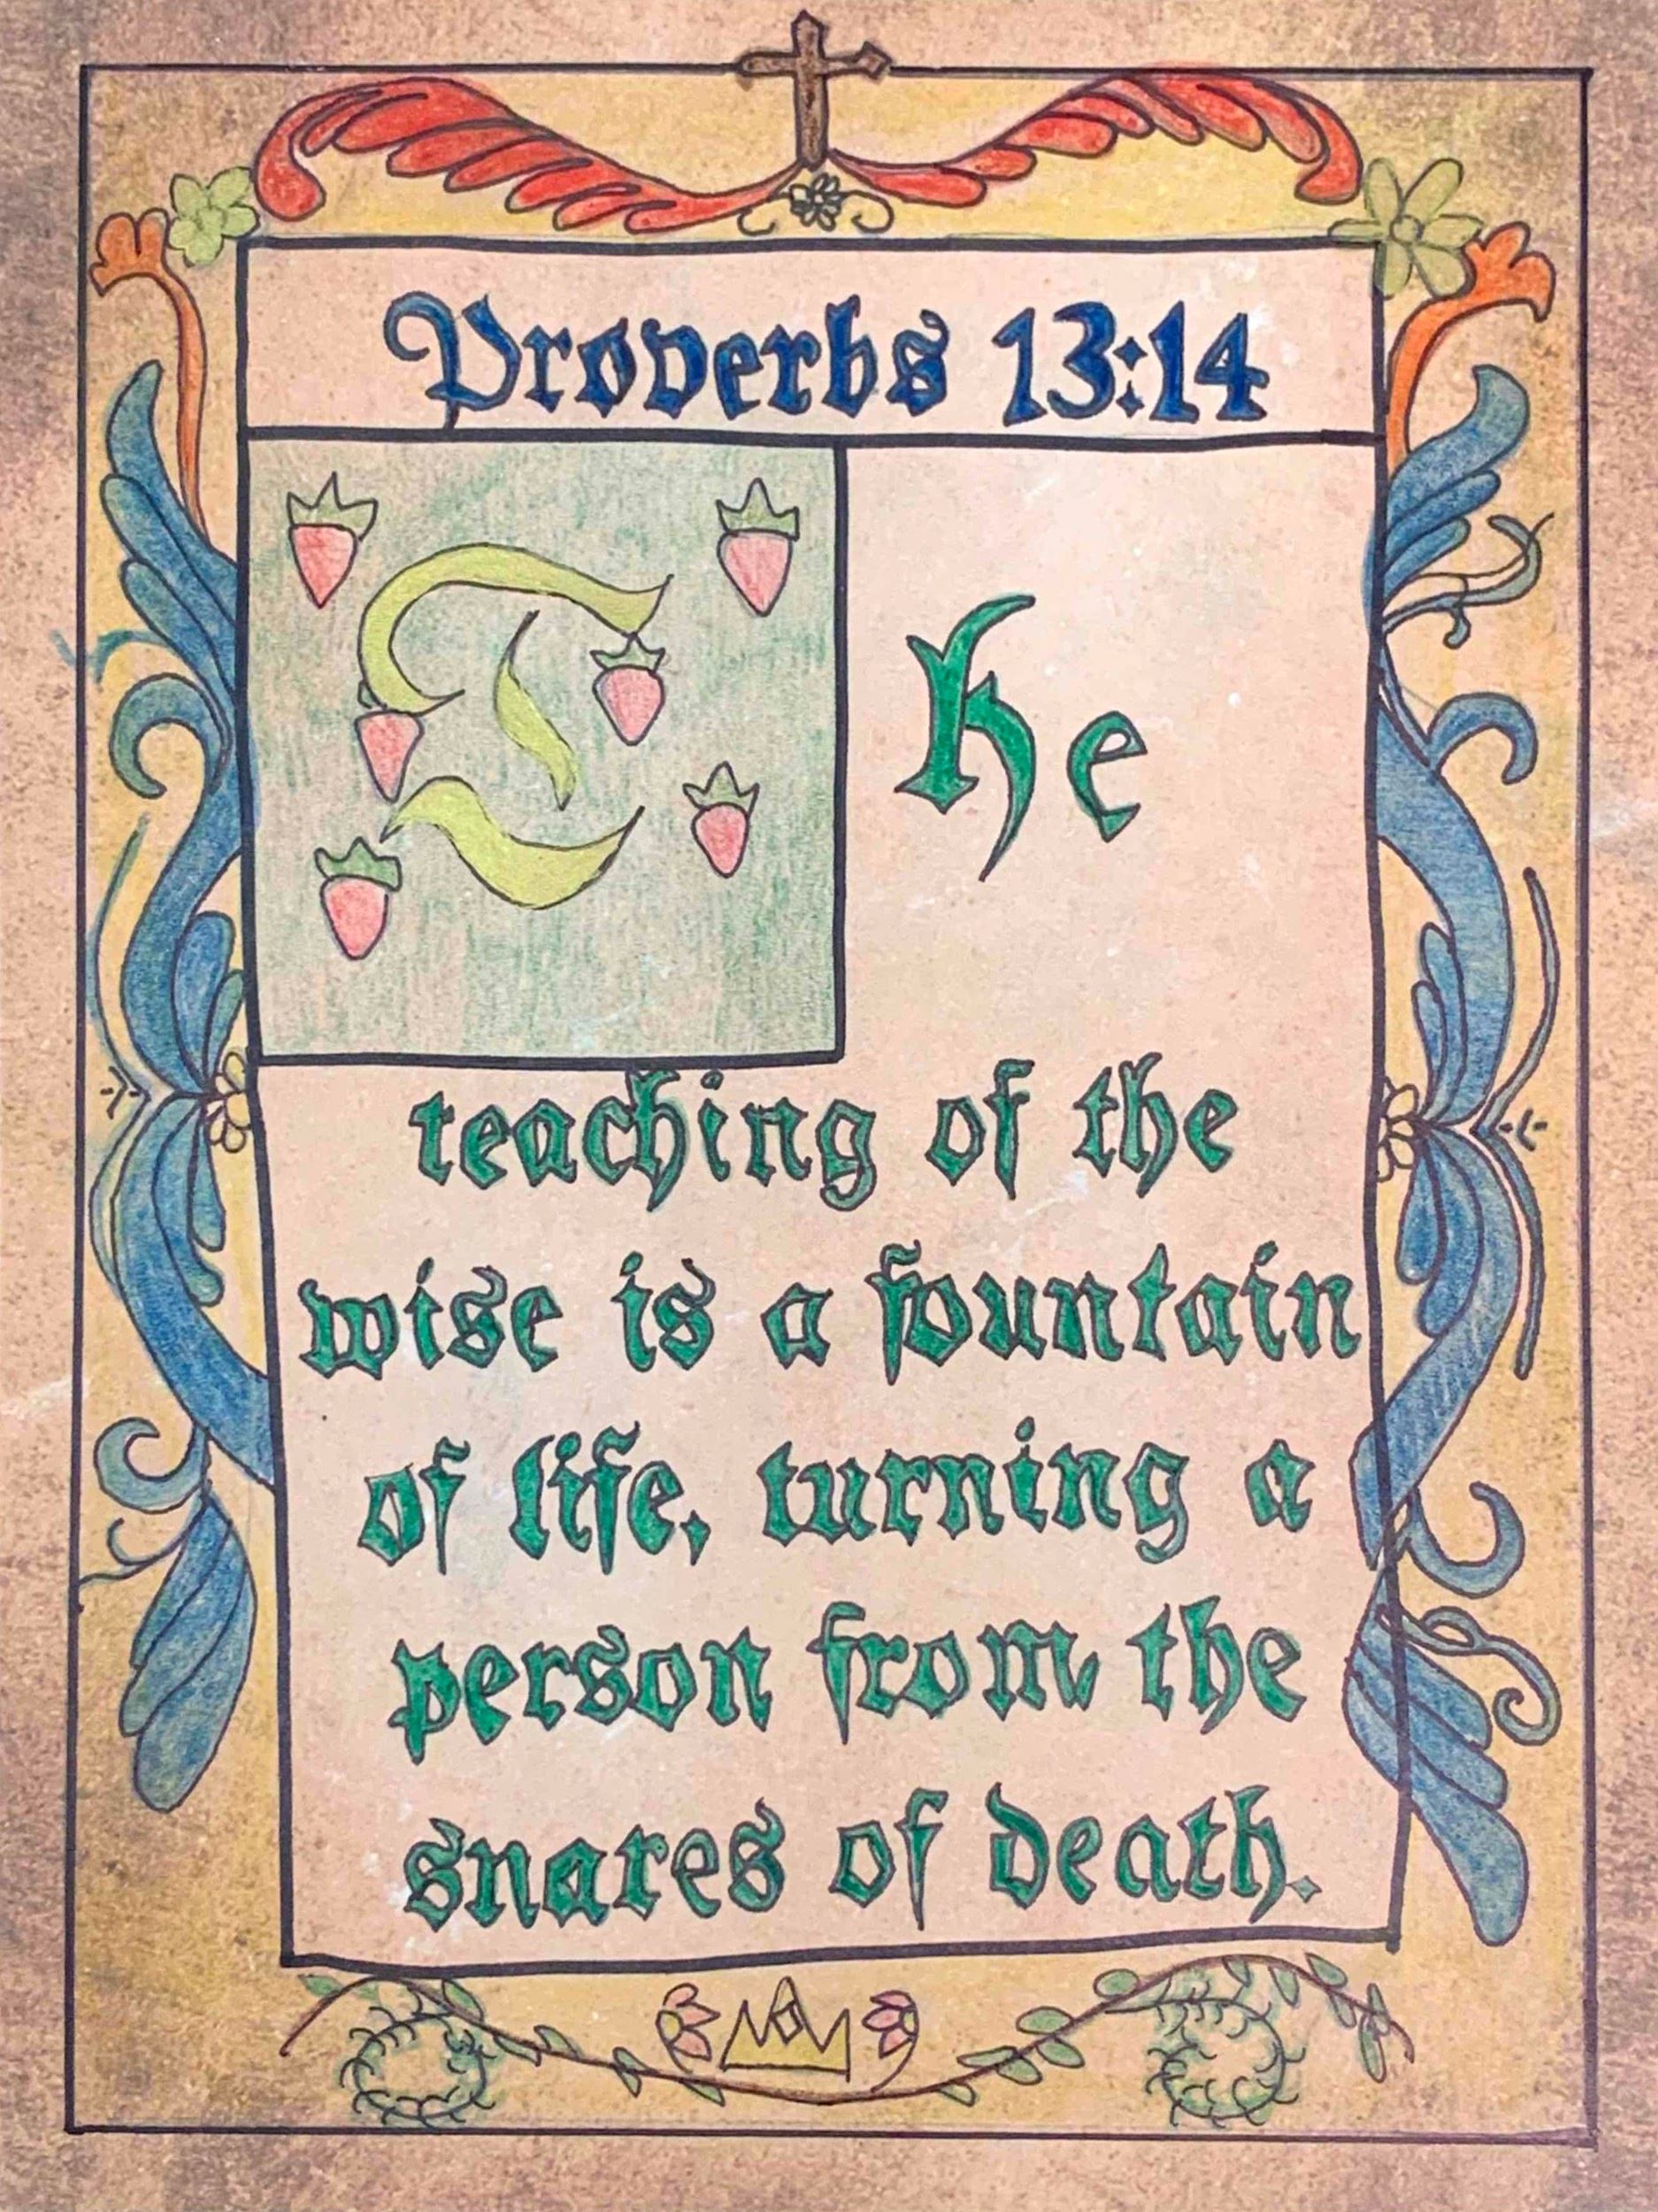 Proverbs 13:14
The
teaching of the
wise is a fountain
of life, turning a
person from the
snares of death.